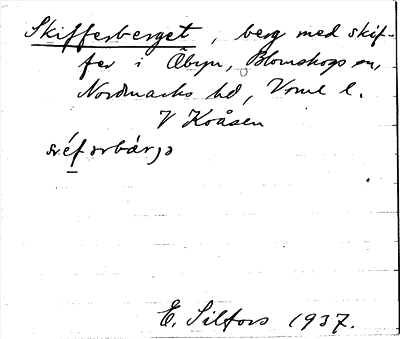 Skifferberget, berg med skif-
fer i Åbyn, Blomskogs sn,
Nordmarks hd, Vrml l.
V Koåsen
E. Silfors 1937.